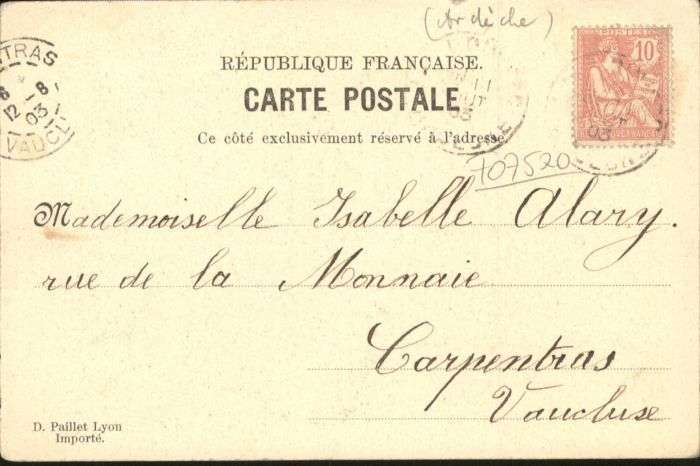 (Ardèche)
TRAS
12 -8
03
VAUCL
RÉPUBLIQUE FRANÇAISE.
CARTE POSTALE
Ce côté exclusivement réservé à l'adresse.
POSTES
10
03
107520
Mademoiselle Isabelle Alary.
rue de la Monnaie
Carpentras
Vaucluse
D. Paillet Lyon
Importé.